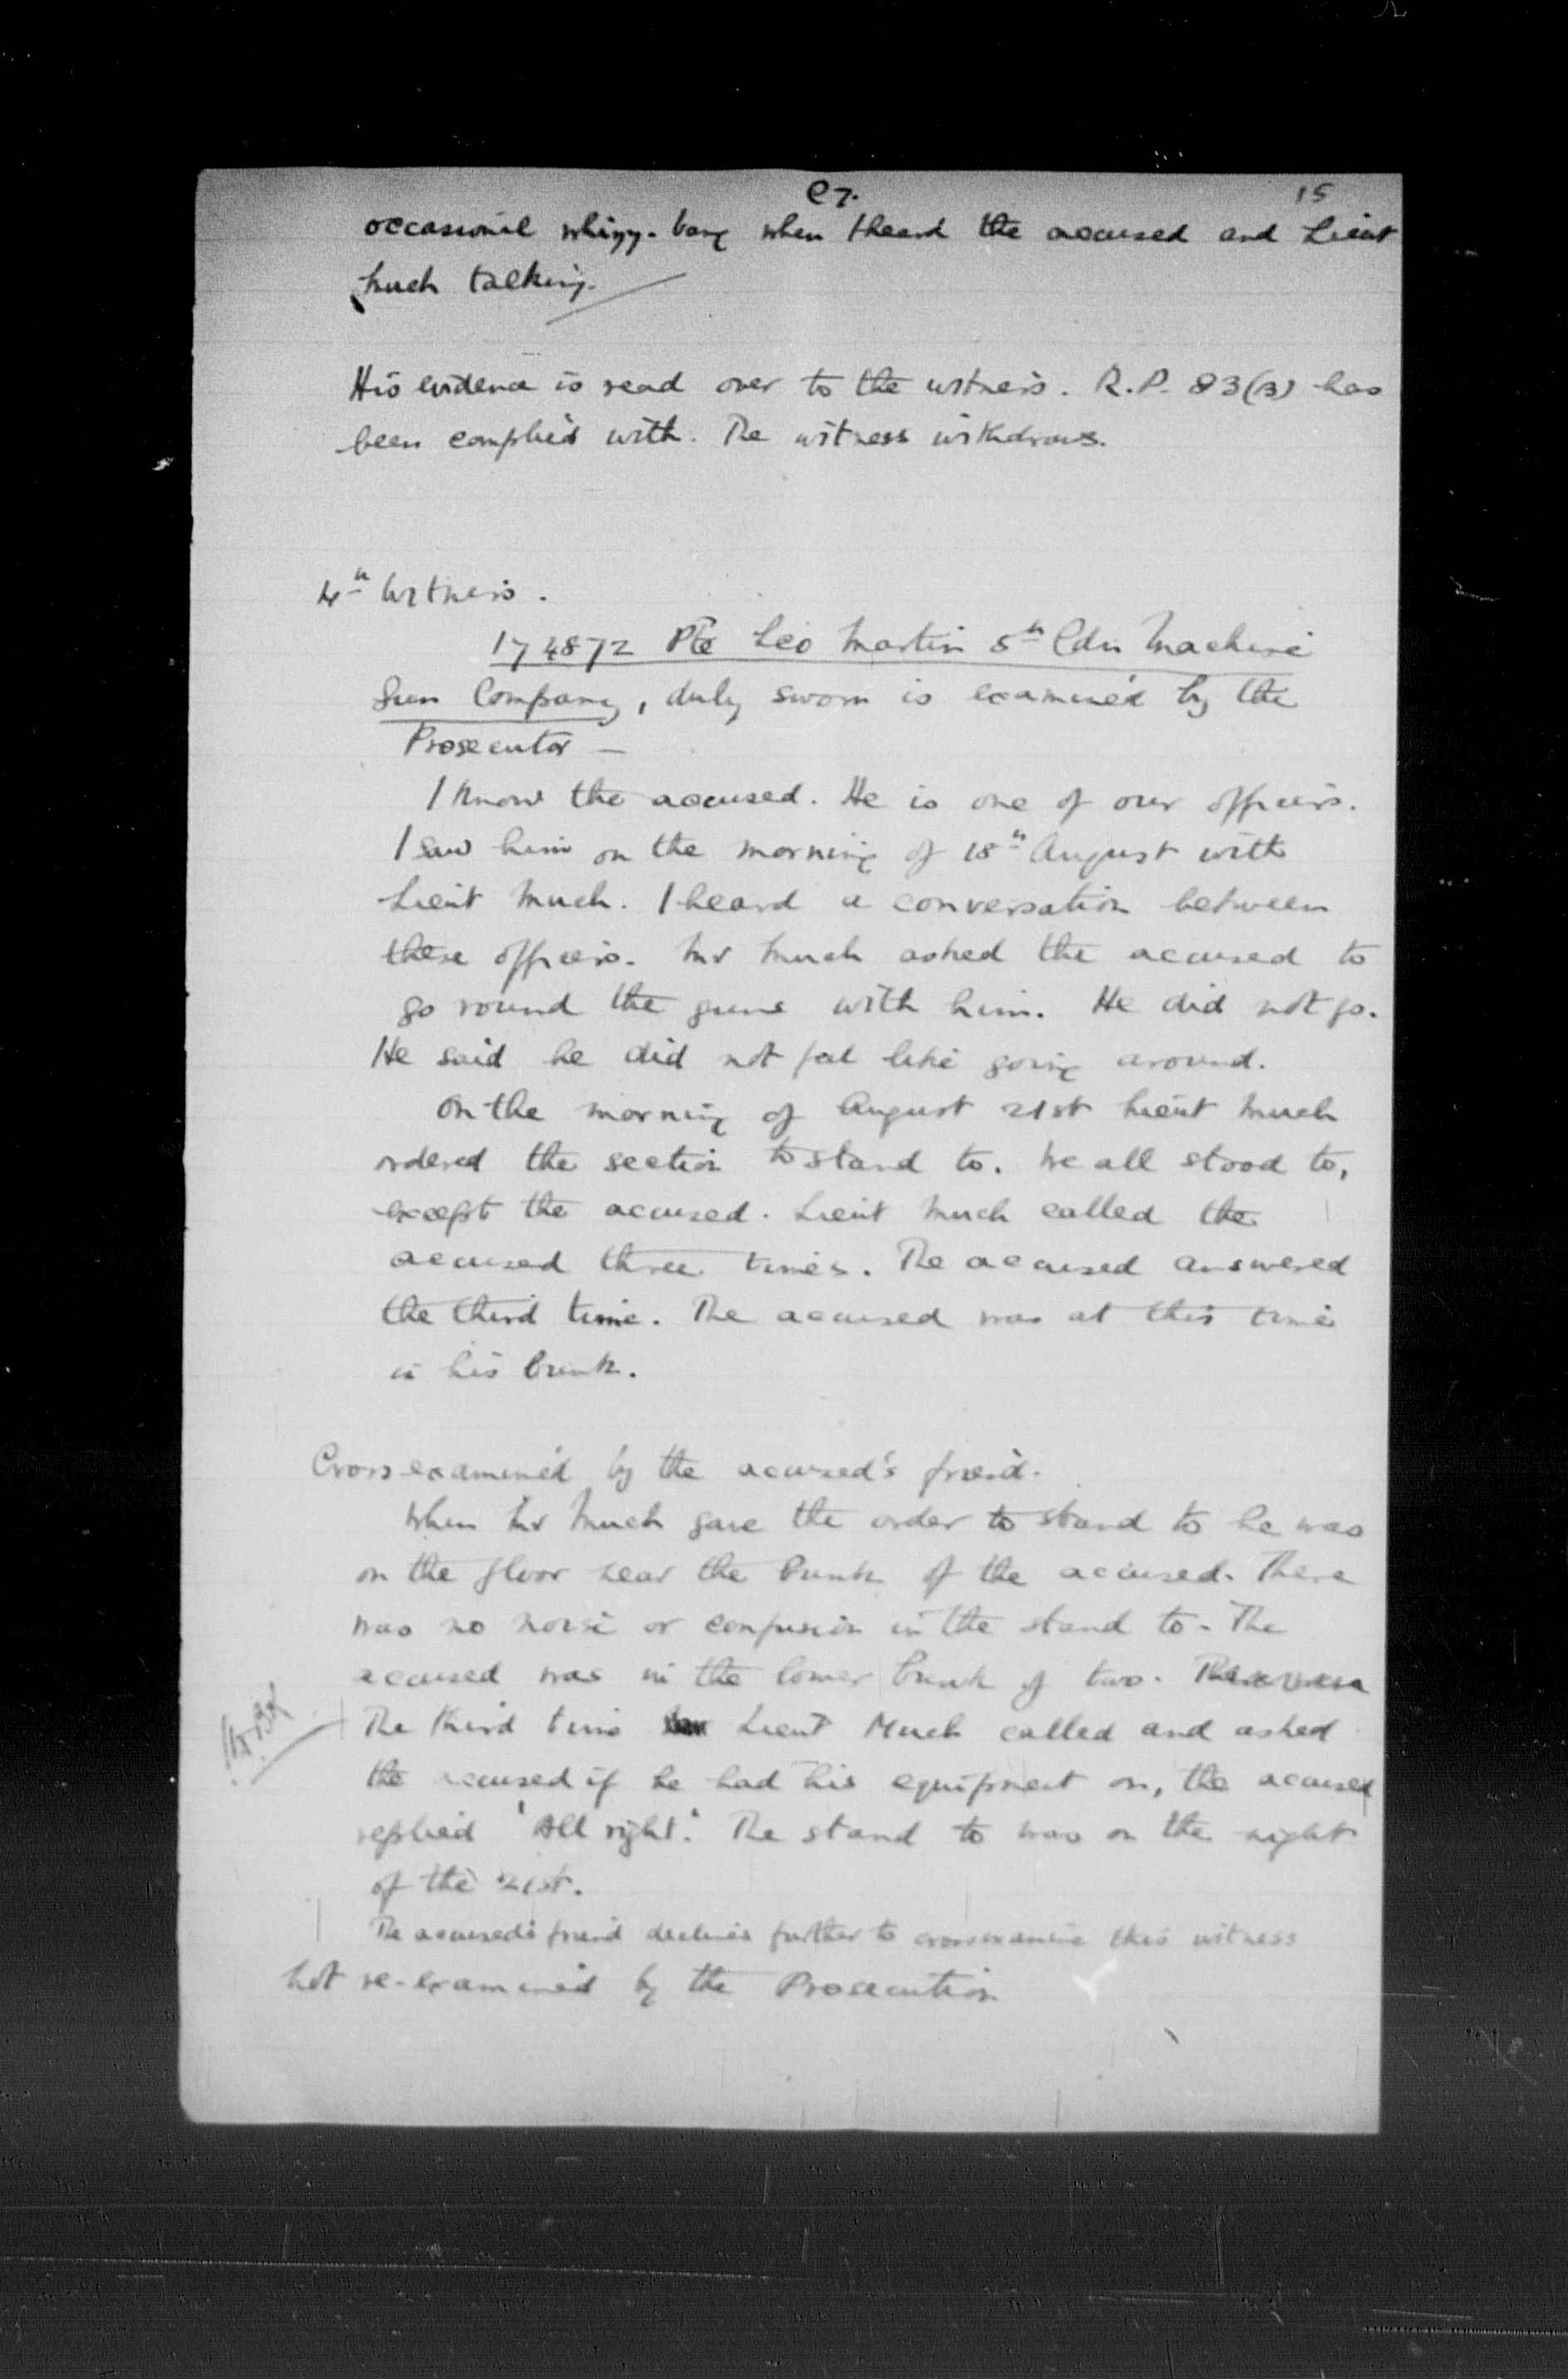 C7. 15
occasional whizz-bang when I heard the accused and Lieut
Much talking.
His evidence is read over to the witness. R.P. 83(B) has
been complied with. The witness withdraws.
4th Witness.
174872 Pte Leo Martin 5th Cdn Machine
Gun Company, duly sworn is examined by the
Prosecutor —
I know the accused. He is one of our officers.
I saw him on the morning of 18th August with
Lieut Much. I heard a conversation between
these officers. Mr Much asked the accused to
go round the guns with him. He did not go.
He said he did not feel like going around.
On the morning of August 21st Lieut Much
ordered the section to stand to. We all stood to,
except the accused. Lieut Much called the
accused three times. The accused answered
the third time. The accused was at this time
in his bunk.
Cross-examined by the accused's friend.
When Mr Much gave the order to stand to he was
on the floor near the bunk of the accused. There
was no noise or confusion in the stand to. The
accused was in the lower bunk of two.
The third time Lieut Much called and asked
the accused if he had his equipment on, the accused
replied 'All right'. The stand to was on the night
of the 21st.
The accused's friend declines further to cross examine this witness
Not re-examined by the Prosecution